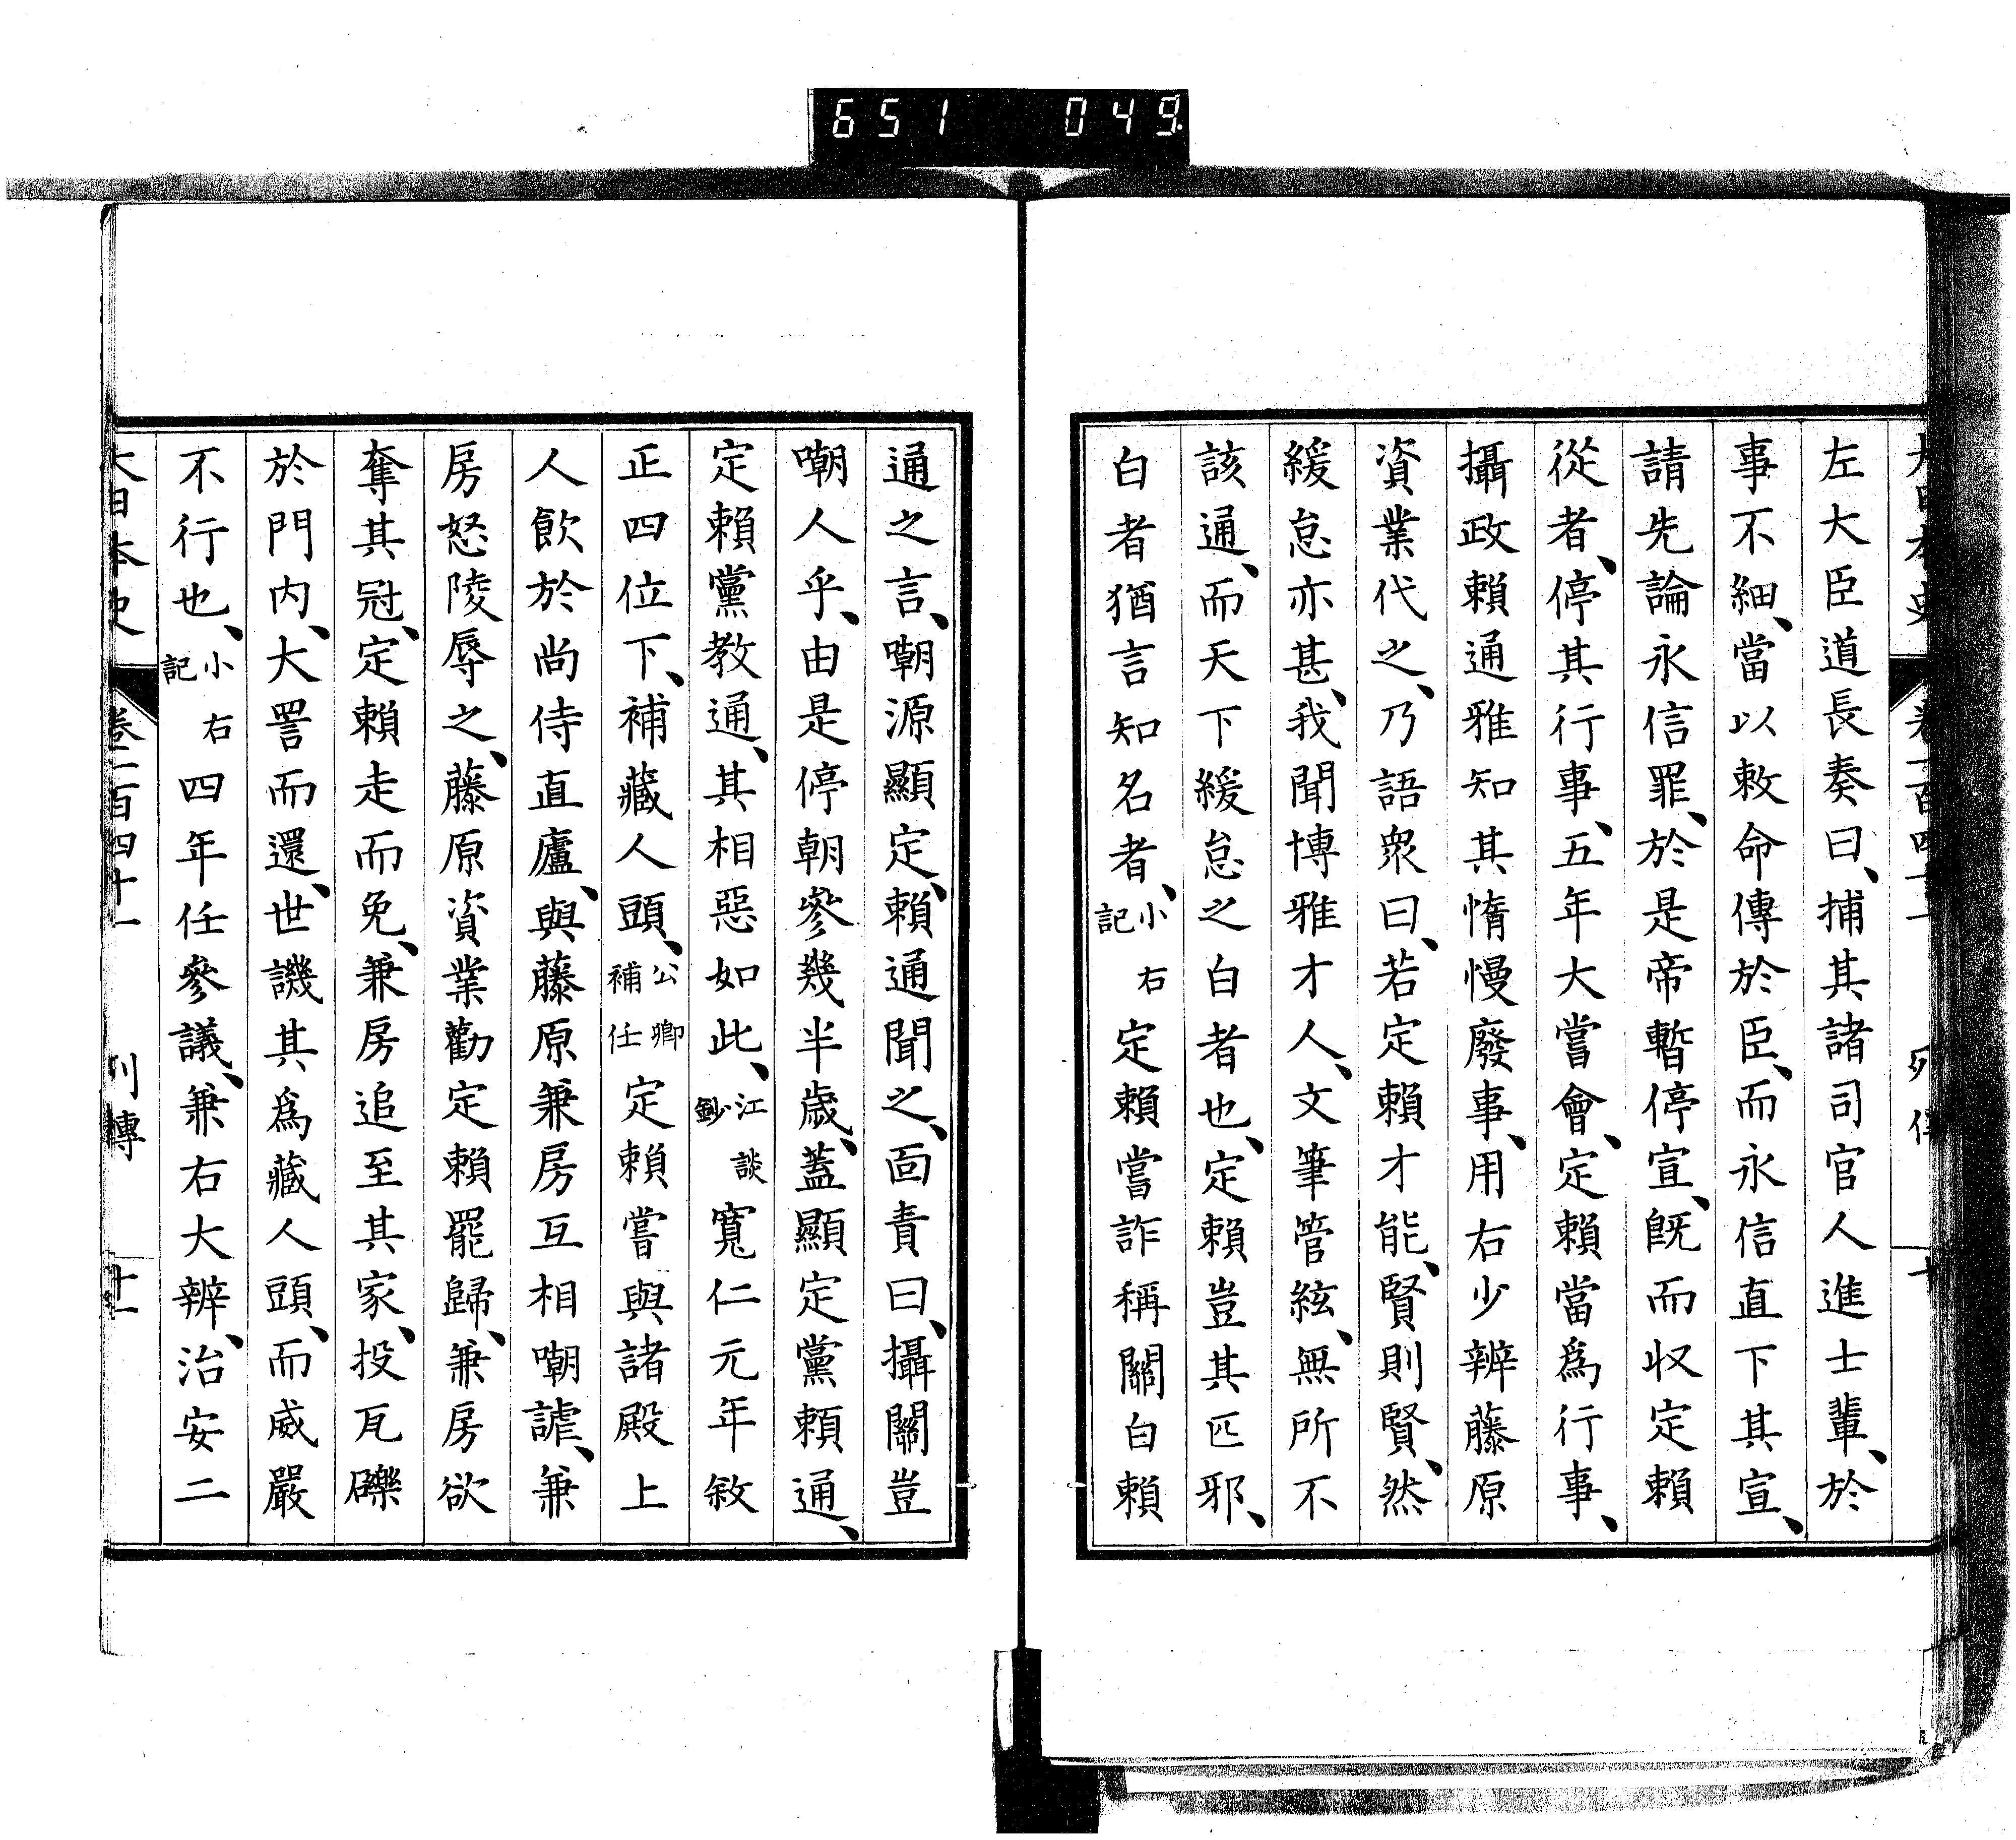 651 049
左大臣道長奏曰、捕其諸司官人進士輩、於
事不細、當以敕命傳於臣、而永信直下其宣、
請先論永信罪、於是帝暫停宣、旣而收定賴
從者、停其行事、五年大嘗會、定賴當爲行事、
攝政賴通雅知其惰慢廢事、用右少辨藤原
資業代之、乃語衆曰、若定賴才能、賢則賢、然
緩怠亦甚、我聞博雅才人、文筆管絃、無所不
該通、而天下緩怠之白者也、定賴豈其匹邪、
白者猶言知名者、小右記定賴嘗詐稱關白賴
通之言、嘲源顯定、賴通聞之、面責曰、攝關豈
嘲人乎、由是停朝參幾半歲、蓋顯定黨賴通、
定賴黨教通、其相惡如此、江談鈔寬仁元年敘
正四位下、補藏人頭、公卿補任定賴嘗與諸殿上
人飮於尚侍直廬、與藤原兼房互相嘲謔、兼
房怒陵辱之、藤原資業勸定賴罷歸、兼房欲
奪其冠、定賴走而免、兼房追至其家、投瓦礫
於門内、大詈而還、世譏其爲藏人頭、而威嚴
不行也、小右記四年任參議、兼右大辨、治安二
大日本史 卷二百四十一 列傳 十一